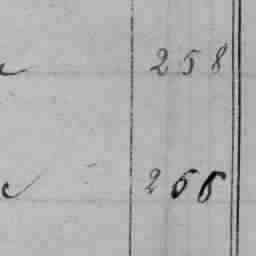 258
266